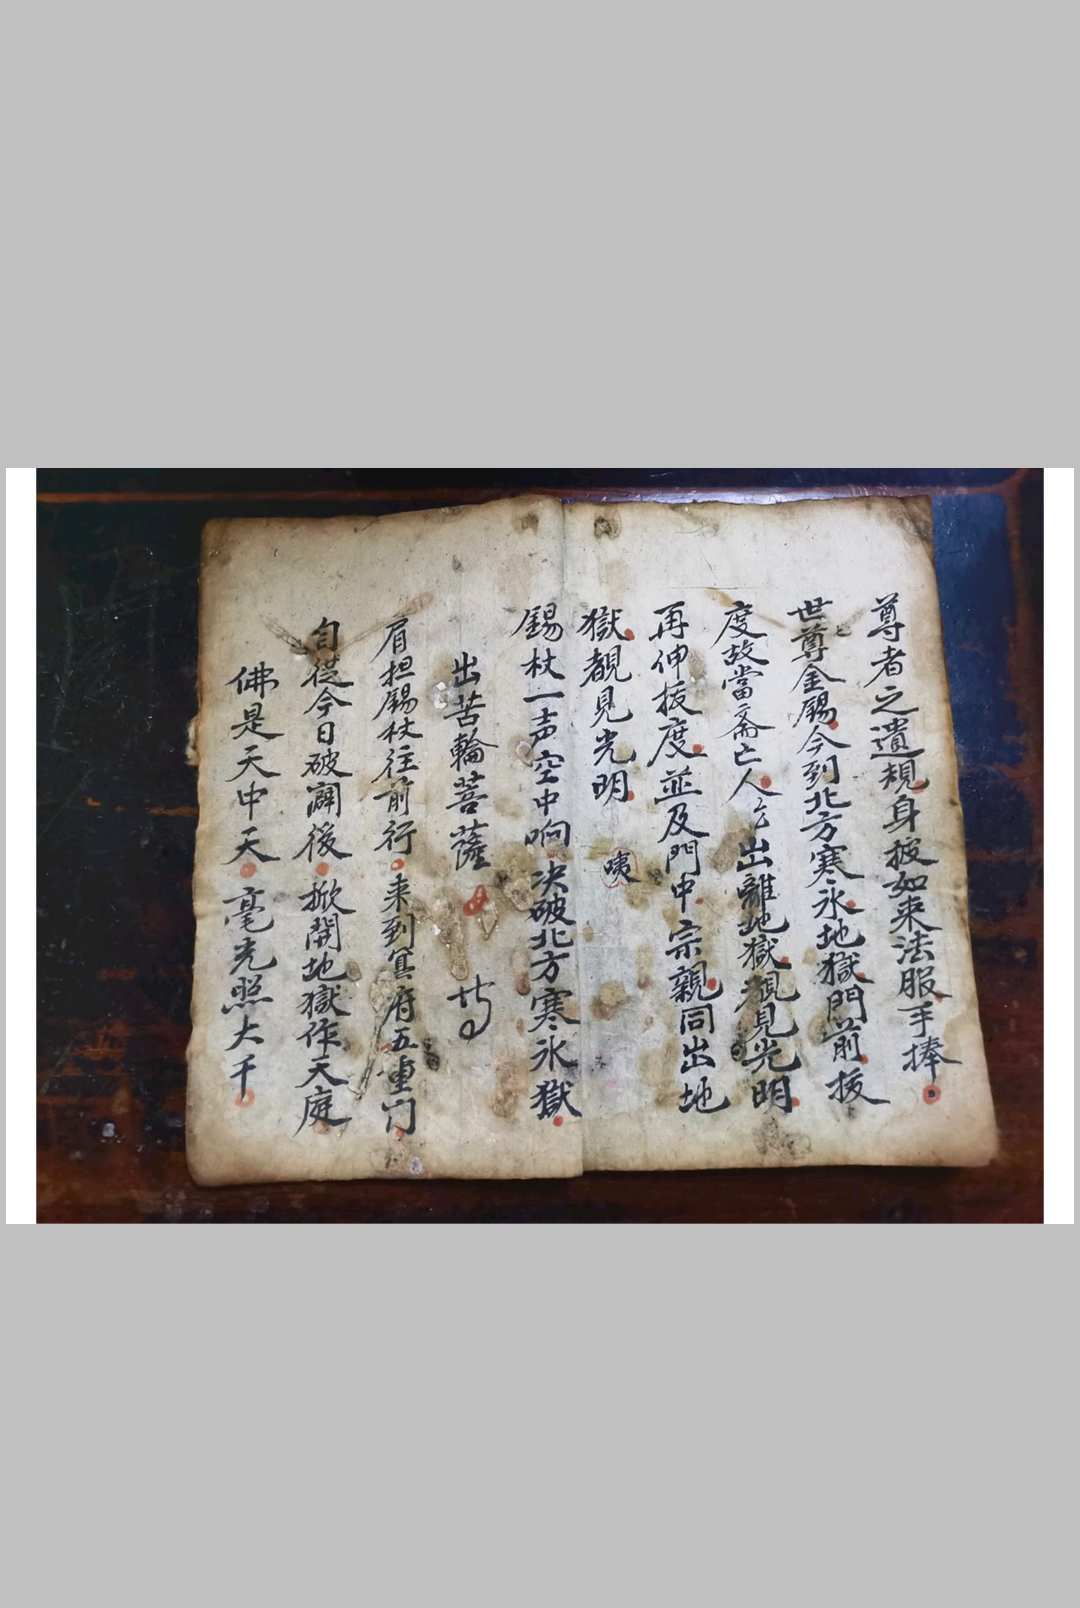 尊者之遺規身披如来法服手捧
世尊金錫今到北方寒氷地獄門前拔
度故當斋亡人出離地獄覩見光明
再伸拔度並及門中宗親同出地
獄覩見光明 咦
錫杖一声空中响决破北方寒氷獄
出苦輪菩薩
肩担錫杖往前行来到冥府五重门
自從今日破開後掀開地獄作天庭
佛是天中天毫光照大千